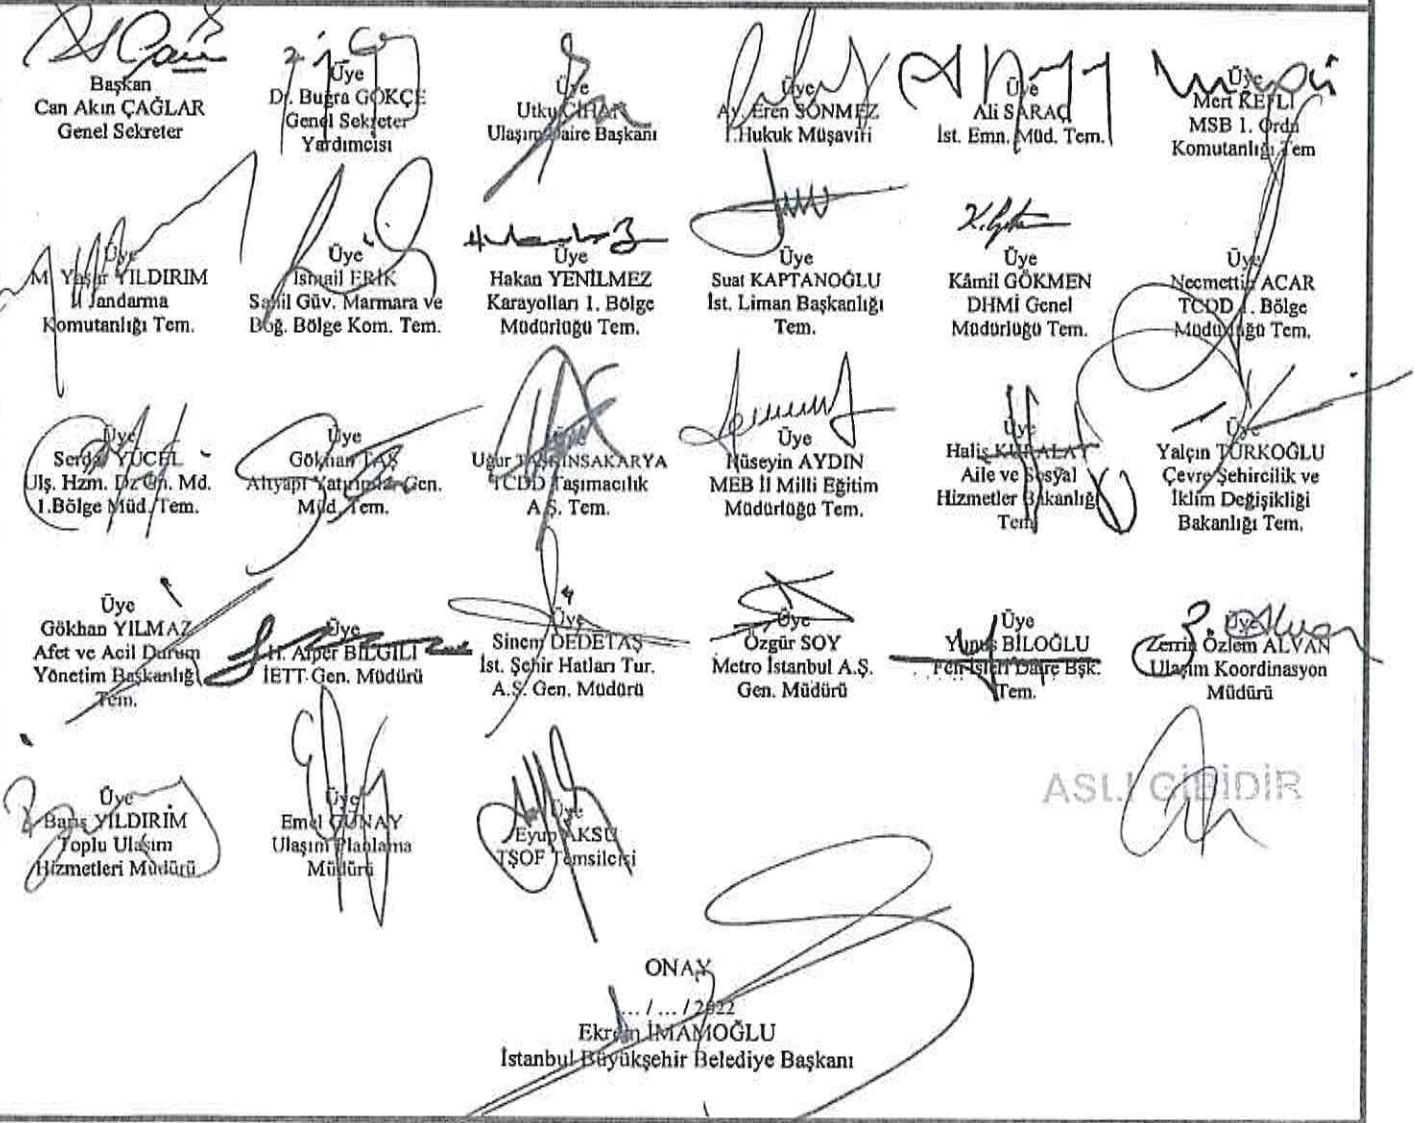 Başkan
Can Akın ÇAĞLAR
Genel Sekreter
Üye
Dr. Buğra GÖKÇE
Genel Sekreter
Yardımcısı
Üye
Utku CİHAN
Ulaşım Daire Başkanı
Üye
Av. Eren SÖNMEZ
1.Hukuk Müşaviri
Üye
Ali SARAÇ
İst. Emn. Müd. Tem.
Üye
Mert
MSB 1. Ordu
Komutanlığı Tem
Üye
M. Yaşar YILDIRIM
İl Jandarma
Komutanlığı Tem.
Üye
İsmail ERİK
Sahil Güv. Marmara ve
Boğ. Bölge Kom. Tem.
Üye
Hakan YENİLMEZ
Karayolları 1. Bölge
Müdürlüğü Tem.
Üye
Suat KAPTANOĞLU
İst. Liman Başkanlığı
Tem.
Üye
Kâmil GÖKMEN
DHMİ Genel
Müdürlüğü Tem.
Üye
Necmettin ACAR
TCDD 1. Bölge
Müdürlüğü Tem.
Üye
Serdar YÜCEL
Ulş. Hzm. Dz. Gn. Md.
1.Bölge Müd. Tem.
Üye
Gökhan TAŞ
Altyapı Yatırımlar Gen.
Müd. Tem.
Üye
Uğur TAŞKINSAKARYA
TCDD Taşımacılık
A.Ş. Tem.
Üye
Hüseyin AYDIN
MEB İl Milli Eğitim
Müdürlüğü Tem.
Üye
Halis KURALAY
Aile ve Sosyal
Hizmetler Bakanlığı
Tem.
Üye
Yalçın TÜRKOĞLU
Çevre Şehircilik ve
İklim Değişikliği
Bakanlığı Tem.
Üye
Gökhan YILMAZ
Afet ve Acil Durum
Yönetim Başkanlığı
Tem.
Üye
H. Alper BİLGİLİ
İETT Gen. Müdürü
Üye
Sinem DEDETAŞ
İst. Şehir Hatları Tur.
A.Ş. Gen. Müdürü
Üye
Özgür SOY
Metro İstanbul A.Ş.
Gen. Müdürü
Üye
Yunus BİLOĞLU
Fen İşleri Daire Bşk.
Tem.
Üye
Zerrin Özlem ALVAN
Ulaşım Koordinasyon
Müdürü
Üye
Barış YILDIRIM
Toplu Ulaşım
Hizmetleri Müdürü
Üye
Emel GÜNAY
Ulaşım Planlama
Müdürü
Üye
Eyup AKSU
TŞOF Temsilcisi
ASLI GİBİDİR
ONAY
... / ... / 2022
Ekrem İMAMOĞLU
İstanbul Büyükşehir Belediye Başkanı